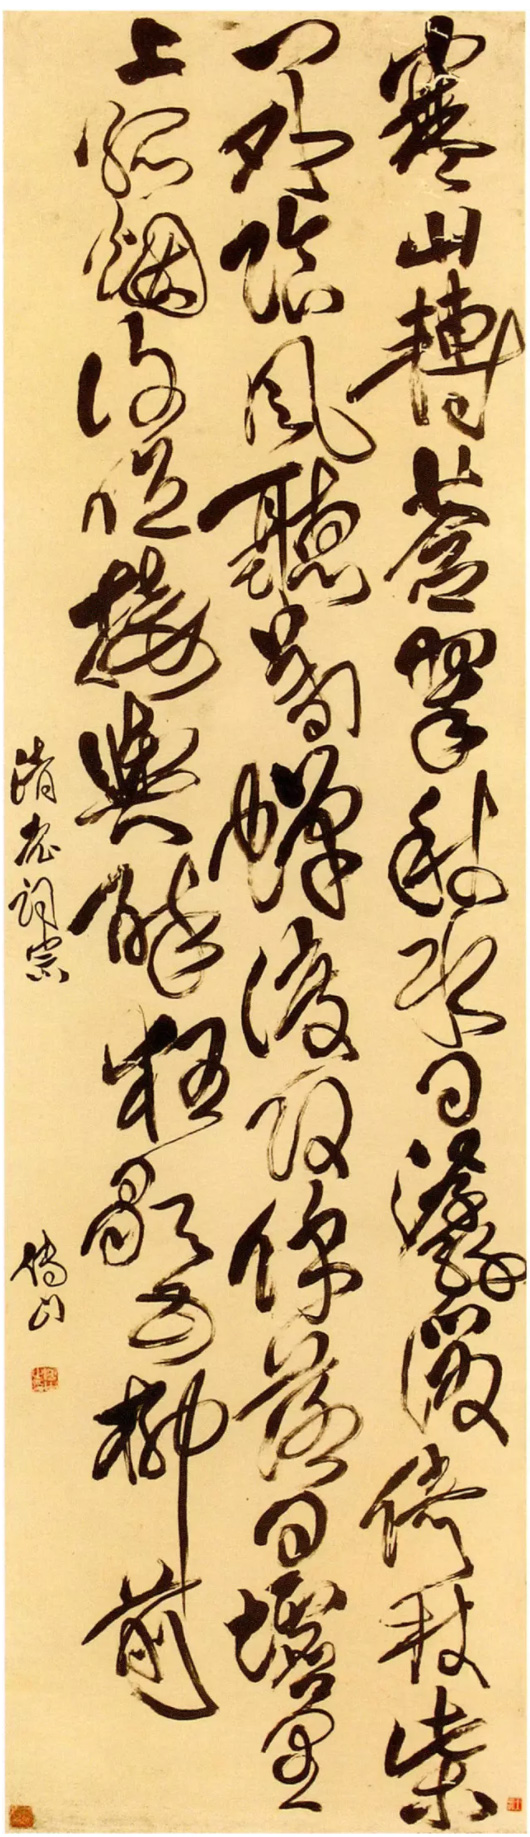 寒山轉蒼翠秋水日潺湲倚杖柴
門外臨風聽暮蟬渡頭餘落日墟里
上孤烟復值接輿醉狂歌五柳前
清老詞宗 傅山